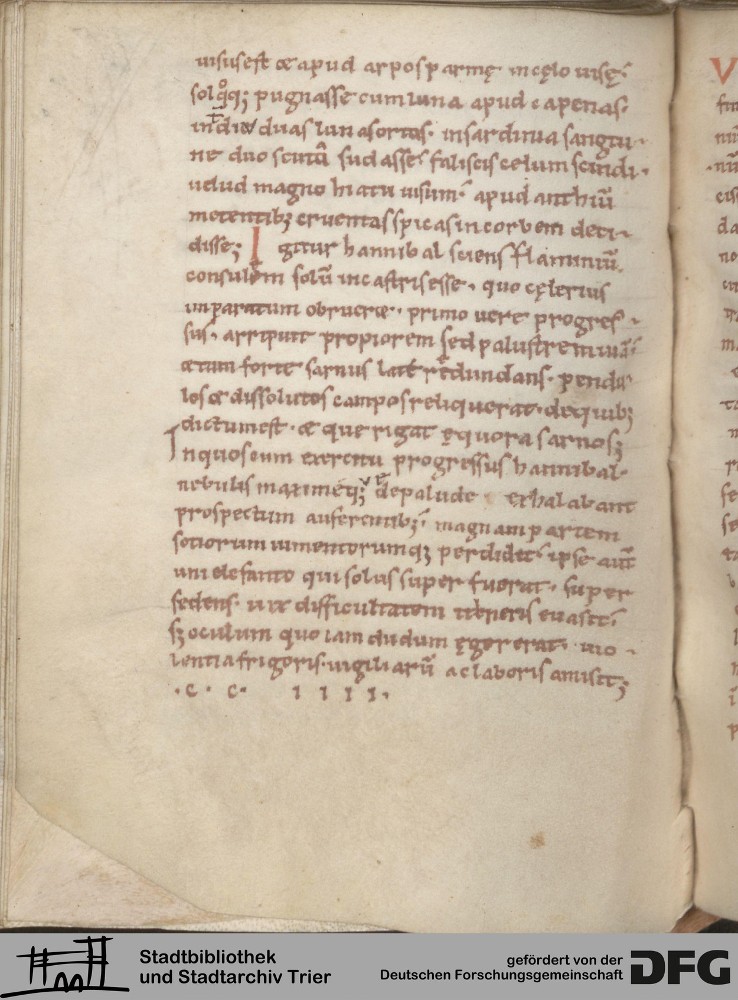 uisusest & apud arpos parmę incęlo uisę.
sol q̊q; pugnasse cum luna apud capenas.
indie duas lunas ortas. insardinia sangui-
ne duo scuta sudasse. faliscis celum scindi
uelud magno hiatu uisum. apud anthiū
metentib; cruentas spicas in corbem deci-
disse; Igitur hannibal sciens flaminiū.
consulem solū incastris esse. quo cęlerius
imparatum obruer&. primo uere progres-
sus. arripuit propiorem sed palustrem uiā.
&tum forte sarnus late redundans. pendu
los & dissolutos campos reliquerat. de quib;
dictum est. & que rigat ęquora sarnos;
Inquos cum exercitu progressus hannibal.
nebulis maximeq; de palude exhalabant
prospectum auferentib;. magnam partem
sotiorum iumentorumq; perdidit. ipse aūt
uni elefanto qui solus super fuerat. super
sedens. uix difficultatem itineris euasit.
s; oculum quo iam dudum ęger erat. uio-
lentia frigoris. uigiliarū ac laboris amisit;
.c. c. IIII.
Stadtbibliothek
und Stadtarchiv Trier
gefördert von der
Deutschen Forschungsgemeinschaft
DFG